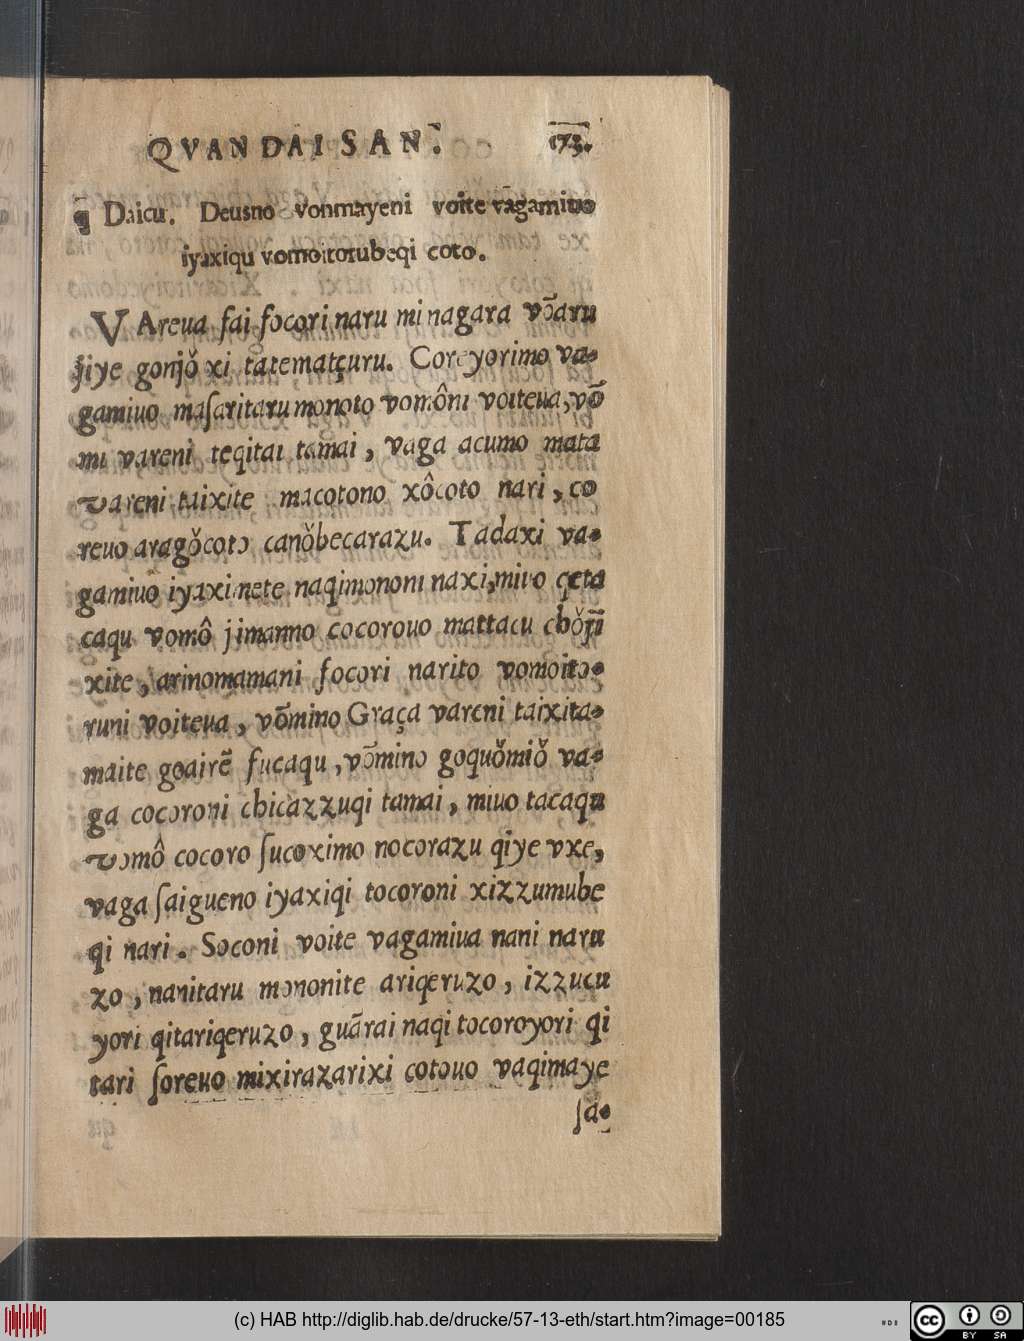 QVAN DAI SAN. 173.
¶ Daicu. Deusno vonmayeni voite vagamiuo
iyaxiqu vomoitorubeqi coto.
VAreua fai focori naru mi nagara vǒaru
jiye gonjǒ xi tatematçuru. Coreyorimo va-
gamiuo maſaritaru monoto vomôni voiteua, vō
mi vareni teqitai tamai, vaga acumo mata
vareni taixite macotono xôcoto nari, co
reuo aragǒcoto canǒbecarazu. Tadaxi va-
gamiuo iyaxinete naqimononi naxi, miuo qeta
caqu vomô jimanno cocorouo mattacu chǒji
xite, arinomamani focori narito vomoito-
runi voiteua, vōmino Graça vareni taixita-
maite goairē fucaqu, vōmino goquǒmiǒ va-
ga cocoroni chicazzuqi tamai, miuo tacaqu
vomô cocoro ſucoximo nocorazu qiye vxe,
vaga ſaigueno iyaxiqi tocoroni xizzumube
qi nari. Soconi voite vagamiua nani naru
zo, nanitaru mononite ariqeruzo, izzucu
yori qitariqeruzo, guārai naqi tocoroyori qi
tari ſoreuo mixirazarixi cotouo vaqimaye
ſa-
(c) HAB http://diglib.hab.de/drucke/57-13-eth/start.htm?image=00185
cc BY SA